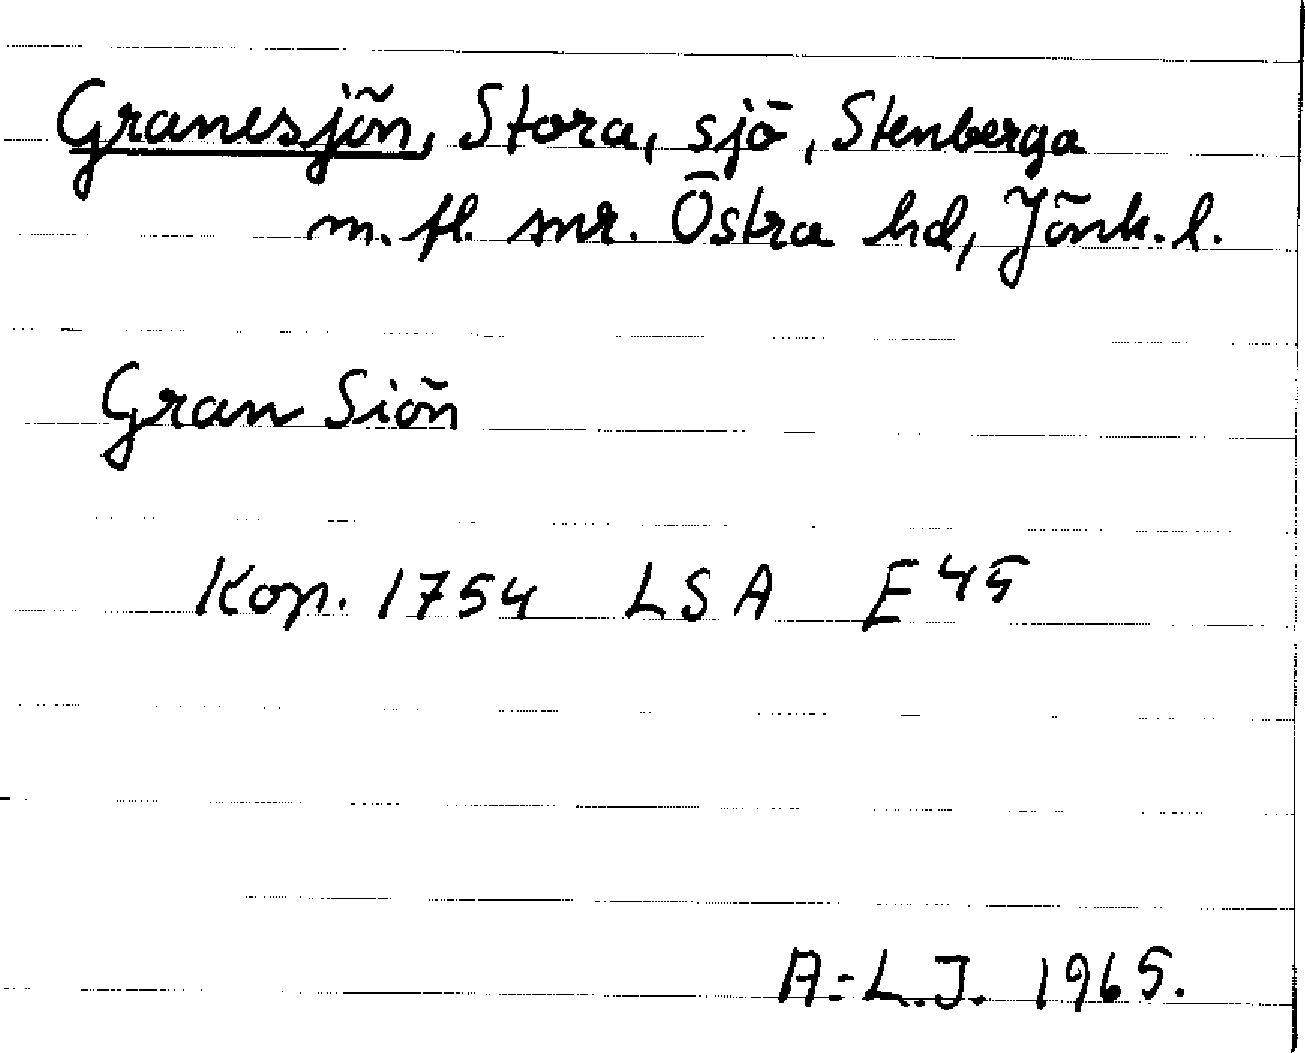 Granesjön, Stora, sjö, Stenberga
m. fl. snr. Östra hd, Jönk. l.
Gran Siön
Kop. 1754 LSA E 45
A-L.J. 1965.